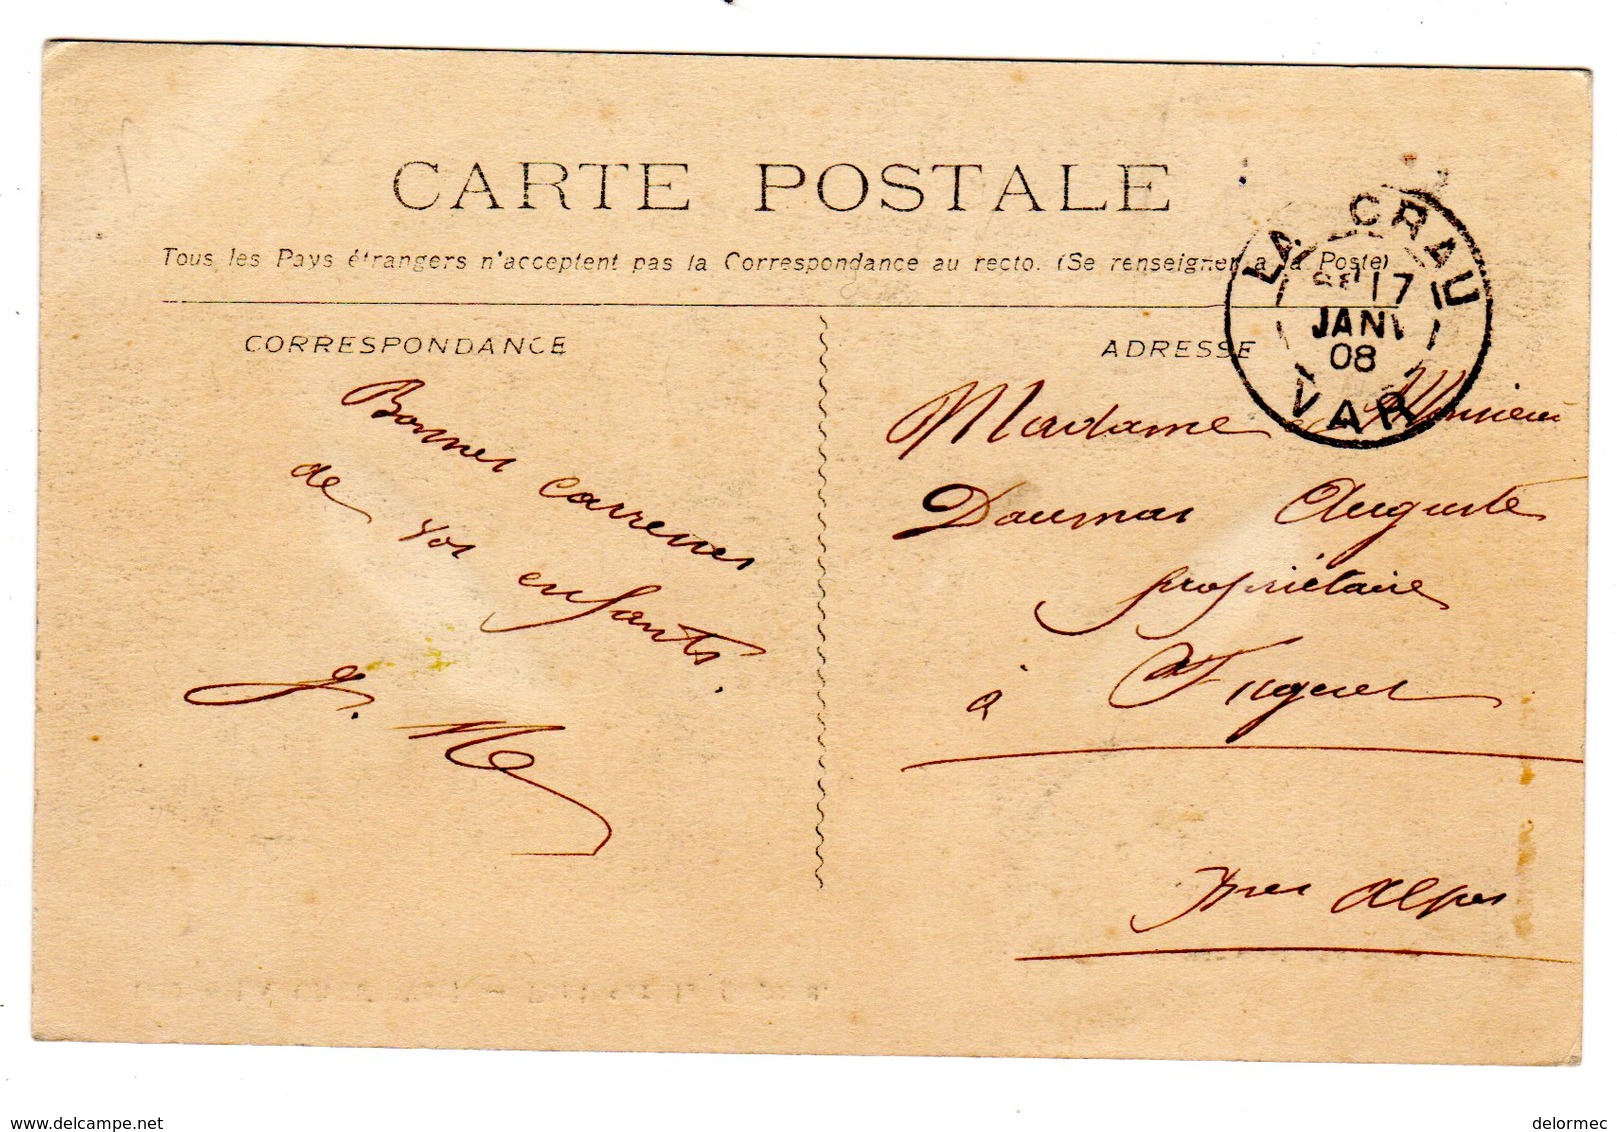 CARTE POSTALE
Tous les Pays étrangers n'acceptent pas la Correspondance au recto. (Se renseigner à la Poste)
CORRESPONDANCE
Bonnes caresses
de vos
enfants.
ADRESSE
LA CRAU
17
JANV
08
VAR
Madame Monsieur
Daumas Auguste
propriétaire
à Fugeret
Bses Alpes
www.delcampe.net
delormec